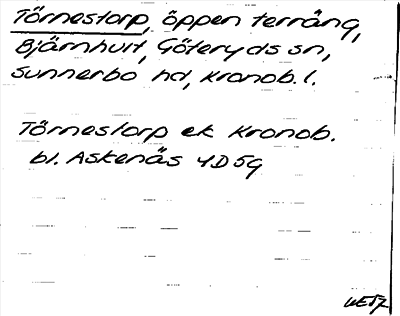 Törnestorp, öppen terräng,
Bjärnhult, Göteryds sn,
Sunnerbo hd, Kronob. l.
Törnestorp ek Kronob.
bl. Askenäs 4D5g